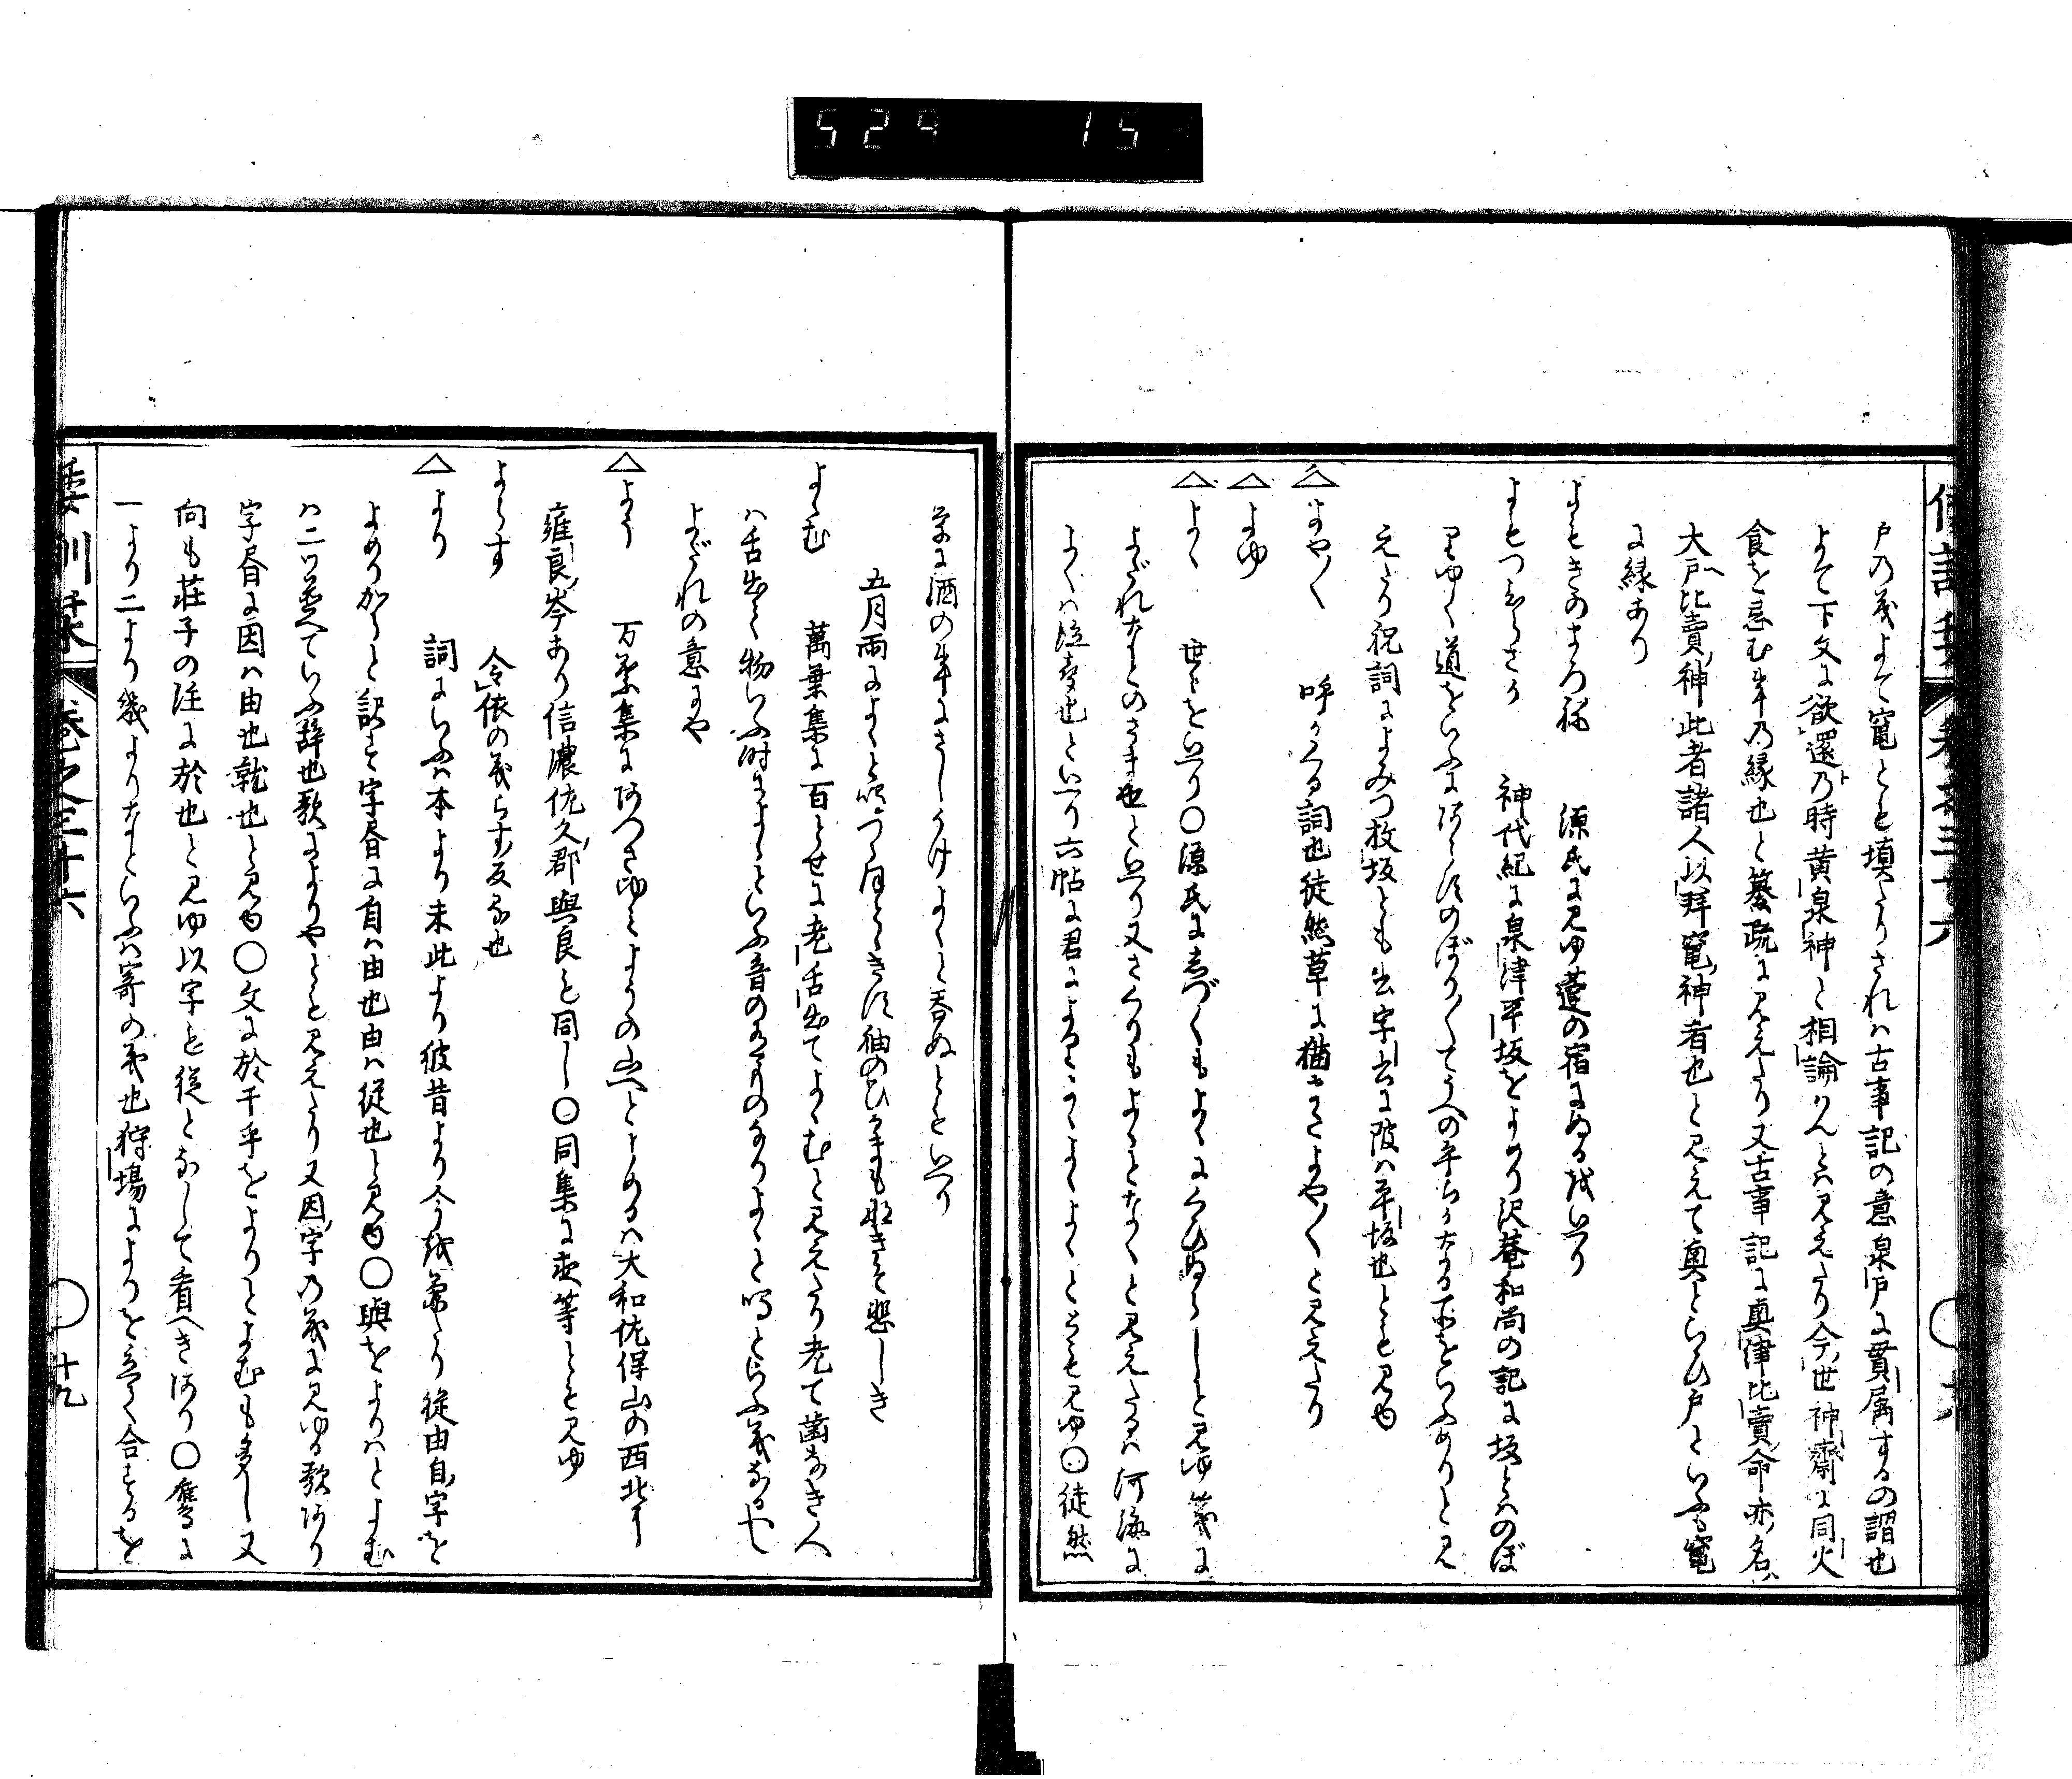 529 15
戸乃義よて竈とも填たりされハ古事記の意泉戸に貫属するの謂也
よて下文に欲還乃時黄泉神と相論はんとハ見えたり今世神齋に同火
食を忌む事乃縁也と纂疏に見えたり又古事記に奥津比賣命亦名
大戸比賣神此者諸人以拜竈神者也と見えて奥といひ戸といふも竈
に縁あり
よもきのまろね 源氏に見ゆ蓬の宿にぬるをいへり
よもつひらさか 神代紀に泉津平坂をよめり沢菴和尚の記に坂とハのぼ
りゆく道をいふにあらすのぼり〱てうへの平らかなる所をいふめりと見
えたり祝詞によみつ枚坂とも出字書に陂ハ平坂也とも見ゆ
△よや〱 呼かくる詞也徒然草に猫またよや〱と見えたり
△よゆ
△よゝ 世ゝをいへり○源氏に志づくもよゝにくひぬらしと見ゆ箋に
よだれなとのさま也といへり又さくりもよゝとなくと見えたるハ河海に
よゝハ泣聲也といへり六帖に君によりよゝよゝよゝととも見ゆ○徒然
草に酒の事にさしうけよゝと呑ぬともいへり
五月雨によゝと鳴つゝほとゝきす袖のひまも悲しき
よゝむ 萬葉集に百とせに老舌出てよゝむと見えたり老て歯なき人
ハ舌出て物いふ時によゝといふ音の有ものなりよゝと鳴といふ義なるへし
よだれの意にや
△よら 万葉集にあつさゆミよらの山へとよめるハ大和佐保山の西北に
雍良岑あり信濃佐久郡與良と同し○同集に夜等とも見ゆ
よらす 令依の義らす反る也
△より 詞にいふハ本より末此より彼昔より今を兼たり従由自字を
よめりからと訳す字書に自ハ由也由ハ従也と見ゆ○與をよりハとよむ
ハ二ツ並へていふ辞也歌によりやとも見えたり又因字乃義に見ゆる歌あり
字書に因ハ由也就也と見ゆ○文に於于乎をよりとよむも多し又
向も荘子の注に於也と見ゆ以字を従となして看へきあり○鷹に
一より二より幾よりなといふハ寄の義也狩場によりを立て合するを
倭訓栞 巻之三十六 ○十九